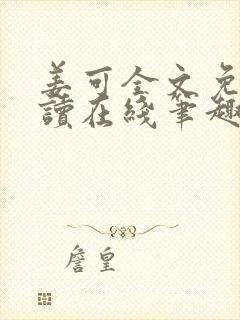 姜可全文免
读在线笔趣
詹皇